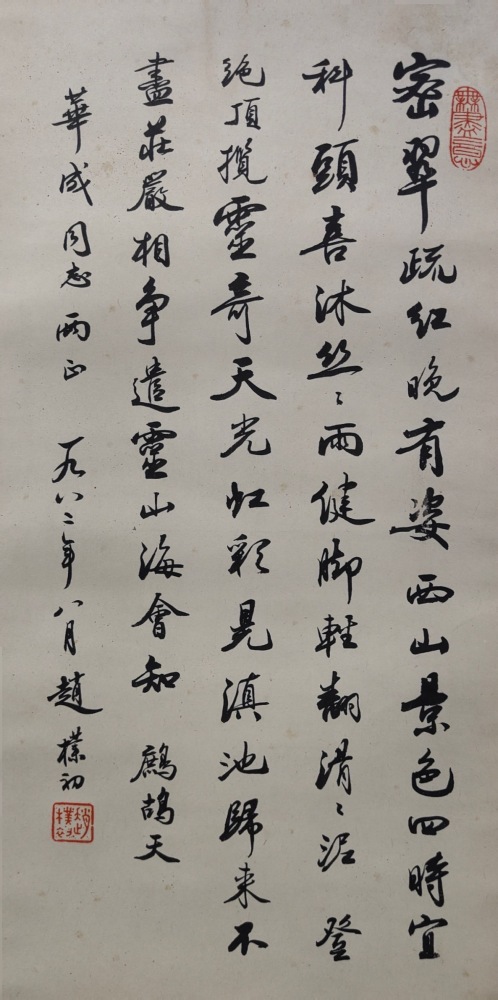 密翠疏红晚有姿西山景色四時宜
科頭喜沐丝〻雨健脚輕翻滑〻泥 登
绝頂攬靈奇天光虹彩晃滇池歸来不
盡莊嚴相争遣靈山海會知 鷓鴣天
華成同志两正 一九八二年八月 趙樸初
趙樸初